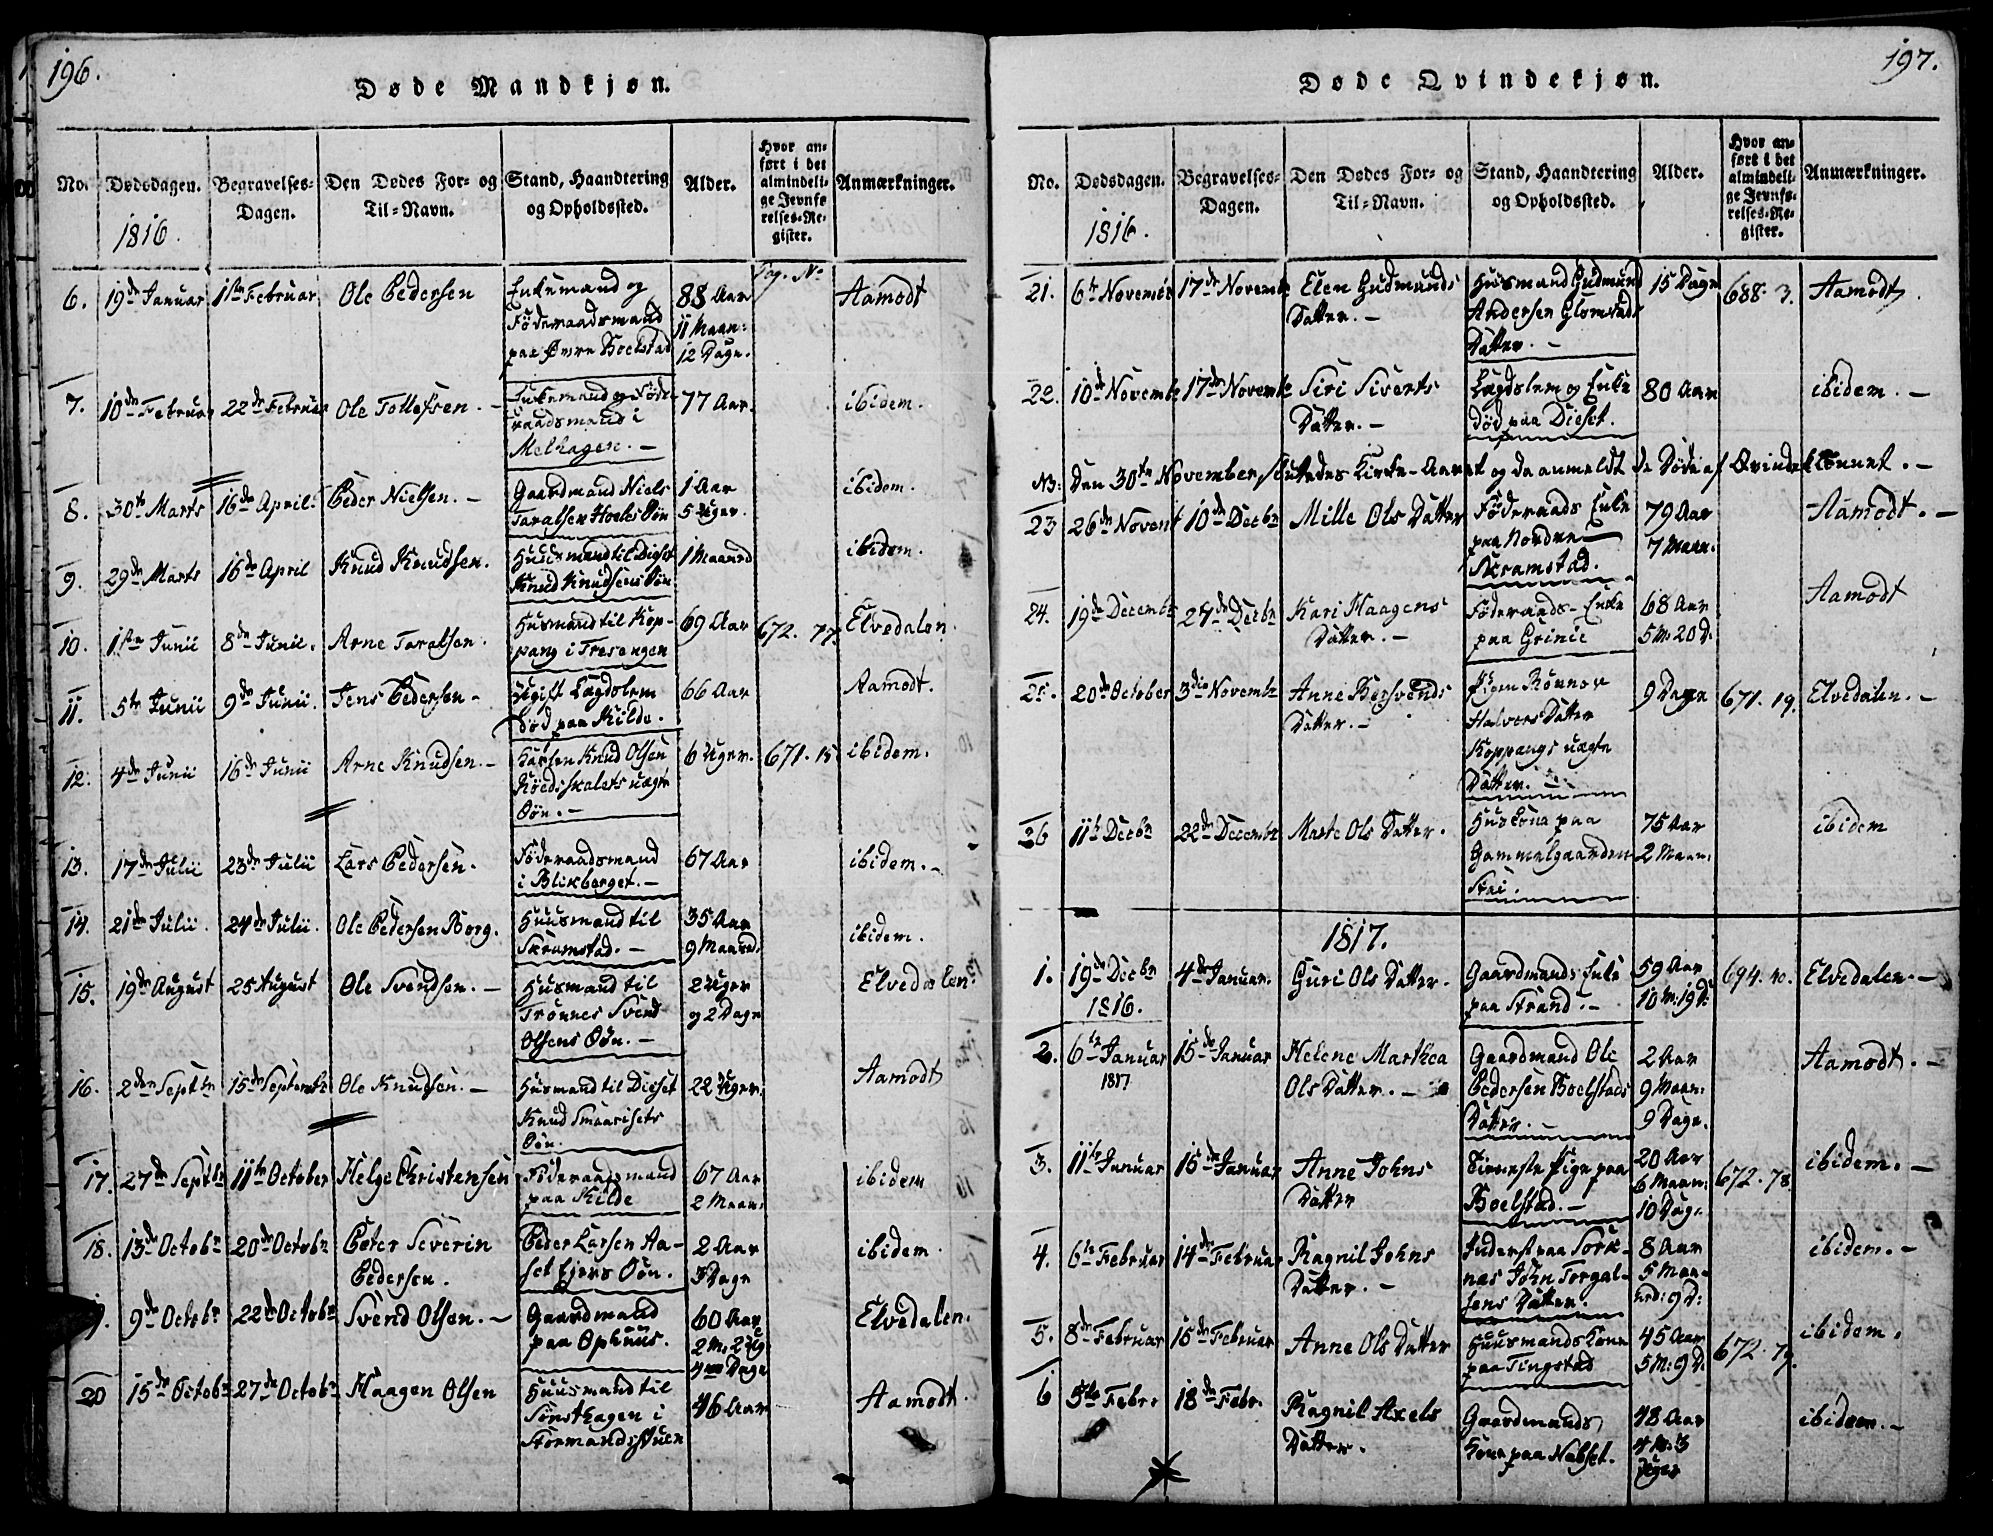 196.
Døde Mandkjøn.
No. Dødsdagen. Begravelses-Dagen. Den Dødes For- og Til-Navn. Stand, Haandtering og Opholdssted. Alder. Hvor anført i det almindelige Jevnførelses-Register. Anmærkninger.
1816.
Pag. No
6. 19de Januar 11te Februar Ole Pedersen Enkemand og 88 Aar Aamodt
Föderaadsmand 11 Maan:
paa Hoelstad 12 Dage.
7. 10de Februar 22de Februar Ole Tollefsen. Enkemand og Föde- 77 Aar ibidem.
raadsmand i
Melhagen. –
8. 30te Marts 16de April. Peder Nielsen. – Gaardmand Niels 1 Aar ibidem.
Taralsen Hoels Søn 5 Uger.
9. 29de Marts 16de April Knud Knudsen. Huusmand til Dieset 1 Maaned ibidem.
Knud Knudsens Søn
10. 1ste Junii 8de Junii. Arne Taralsen. Husmand til Kop- 69 Aar 672. 77. Elvedalen.
pang i Tresengen
11. 5te Junii 9de Junii. Jens Pedersen – Ugift Lægdslem 66 Aar Aamodt.
død paa Kilde.
12. 4de Junii 16de Junii Arne Knudsen. – Karlen Knud Olsen 6 Uger. 671. 15 ibidem.
Rödsskalets uægte
Søn. –
13. 17de Julii 23de Julii Lars Pedersen. Föderaadsmand 67 Aar ibidem. –
i Blikberget. –
14. 21de Julii. 24de Julii. Ole Pedersen Borg. Huusmand til 35 Aar ibidem.
Skramstad. – 9 Maaned.
15. 19de August 25 August Ole Svendsen. – Husmand til 2 Uger Elvedalen.
Trønnes Svend og 2 Dage
Olsens Søn. –
16. 2den Septbr 15de Septembr Ole Knudsen. – Husmand til Dieset 22 Uger. Aamodt
Knud Smaarisets
Søn.
17. 27de Septbr 11te October Helge Christensen Föderaadsmand 67 Aar ibidem
paa Kilde 2 Maan.
18. 13de Octobr 20de Octobr Peter Severin Peder Larsen Aa- 2 Aar ibidem.
Pedersen. set Eiers Søn. 3 Dage
19. 9de Octobr 22de Octobr Svend Olsen. – Gaardmand 60 Aar Elvedalen.
paa Ophuus. 2 M. 2 Ug.
4 Dage
20 15de Octobr 27de Octobr Haagen Olsen Huusmand til 46 Aar Aamodt.
Sønsthagen i
Stormandsstuen
197.
Døde Qvindekjøn.
No. Dødsdagen. Begravelses-Dagen. Den Dødes For- og Til-Navn. Stand, Haandtering og Opholdssted. Alder. Hvor anført i det almindelige Jevnførelses-Register. Anmærkninger.
1816.
21. 6te November 17de Novembr Elen Gudmunds Husmand Gudmund 15 Dage 688. 3. Aamodt.
Datter. – Andersen Glomstads
Datter. –
22. 10de Novembr 17de Novembr Siri Siverts Lægdslem og Enke 80 Aar ibidem. –
Datter. – død paa Dieset.
NB: Den 30te November sluttedes Kirke-Aaret og da anmeldt de Døde af Qvindekönnet. –
23 26de Novembr 10de Decbr Mille Ols Datter Föderaads Enke 79 Aar Aamodt. –
paa Nordre 7 Maan.
Skramstad.
24. 19de Decembr 27de Decbr Kari Haagens Föderaads-Enke 68 Aar Aamodt
Datter. – paa Grinie 5 M. 20 D.
25. 20de October 3die Novembr Anne Bersvends Pigen Rønnov 9 Dage 671. 19. Elvedalen. –
Datter. – Halvors Datter
Koppangs uægte
Datter.
26 11te Decbr 22de Decembr Marte Ols Datter. Huskona paa 75 Aar ibidem
Gammelgaarden 2 Maan:
Stai.
1817.
1. 19de Decbr 4de Januar. Guri Ols Datter. Gaardmands Enke 59 Aar 694. 10. Elvedalen. –
1816. paa Strand. – 10 M: 19 D:
2. 6te Januar 15de Januar Helene Marthea Gaardmand Ole 2 Aar Aamodt. –
1817 Ols Datter. – Pedersen Hoelstads 9 Maan:
Datter. – 9 Dage.
3. 11te Januar 15de Januar Anne Johns Tieneste Pige paa 20 Aar 672. 78. ibidem. –
Datter Hoelstad. – 6 Maan:
10 Dage.
4. 6te Februar 14de Februar Ragnil Johns Inderst paa Sork- 8 Aar ibidem. –
Datter. – nes John Torgal- 5 Maa-
sens Datter. ned: 9 D:
5. 8de Februar 16de Februar Anne Ols Datter Huusmands Kone 45 Aar 672. 79. ibidem.
paa Tingstad 5 M: 9 D.
6 5te Febr. 18de Febr. Ragnil Axels Gaardmands 48 Aar ibidem. –
Datter. Kone paa Nabset. 4 M. 3
Uger